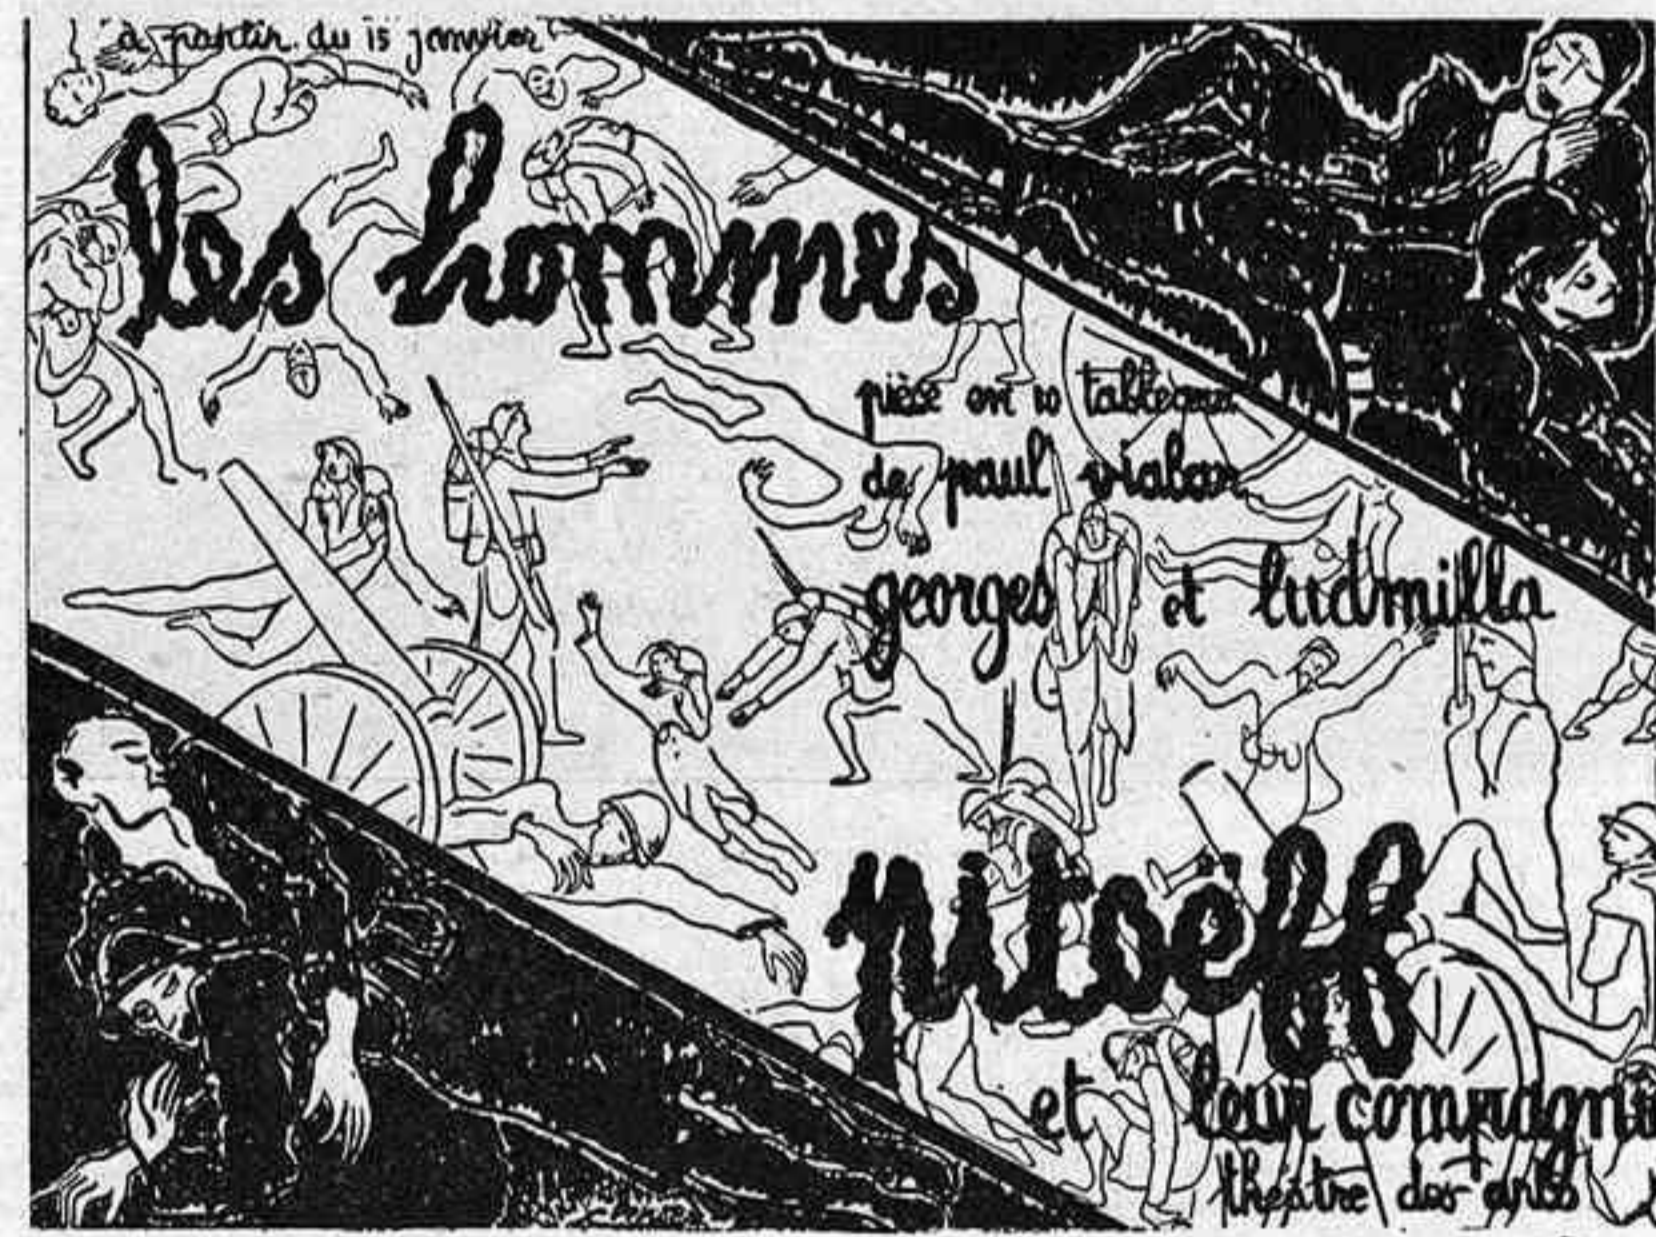 à partir du 15 janvier
les hommes
pièce en 10 tableaux
de paul vialar
georges et ludmilla
pitoëff
et leur compagnie
théâtre des arts